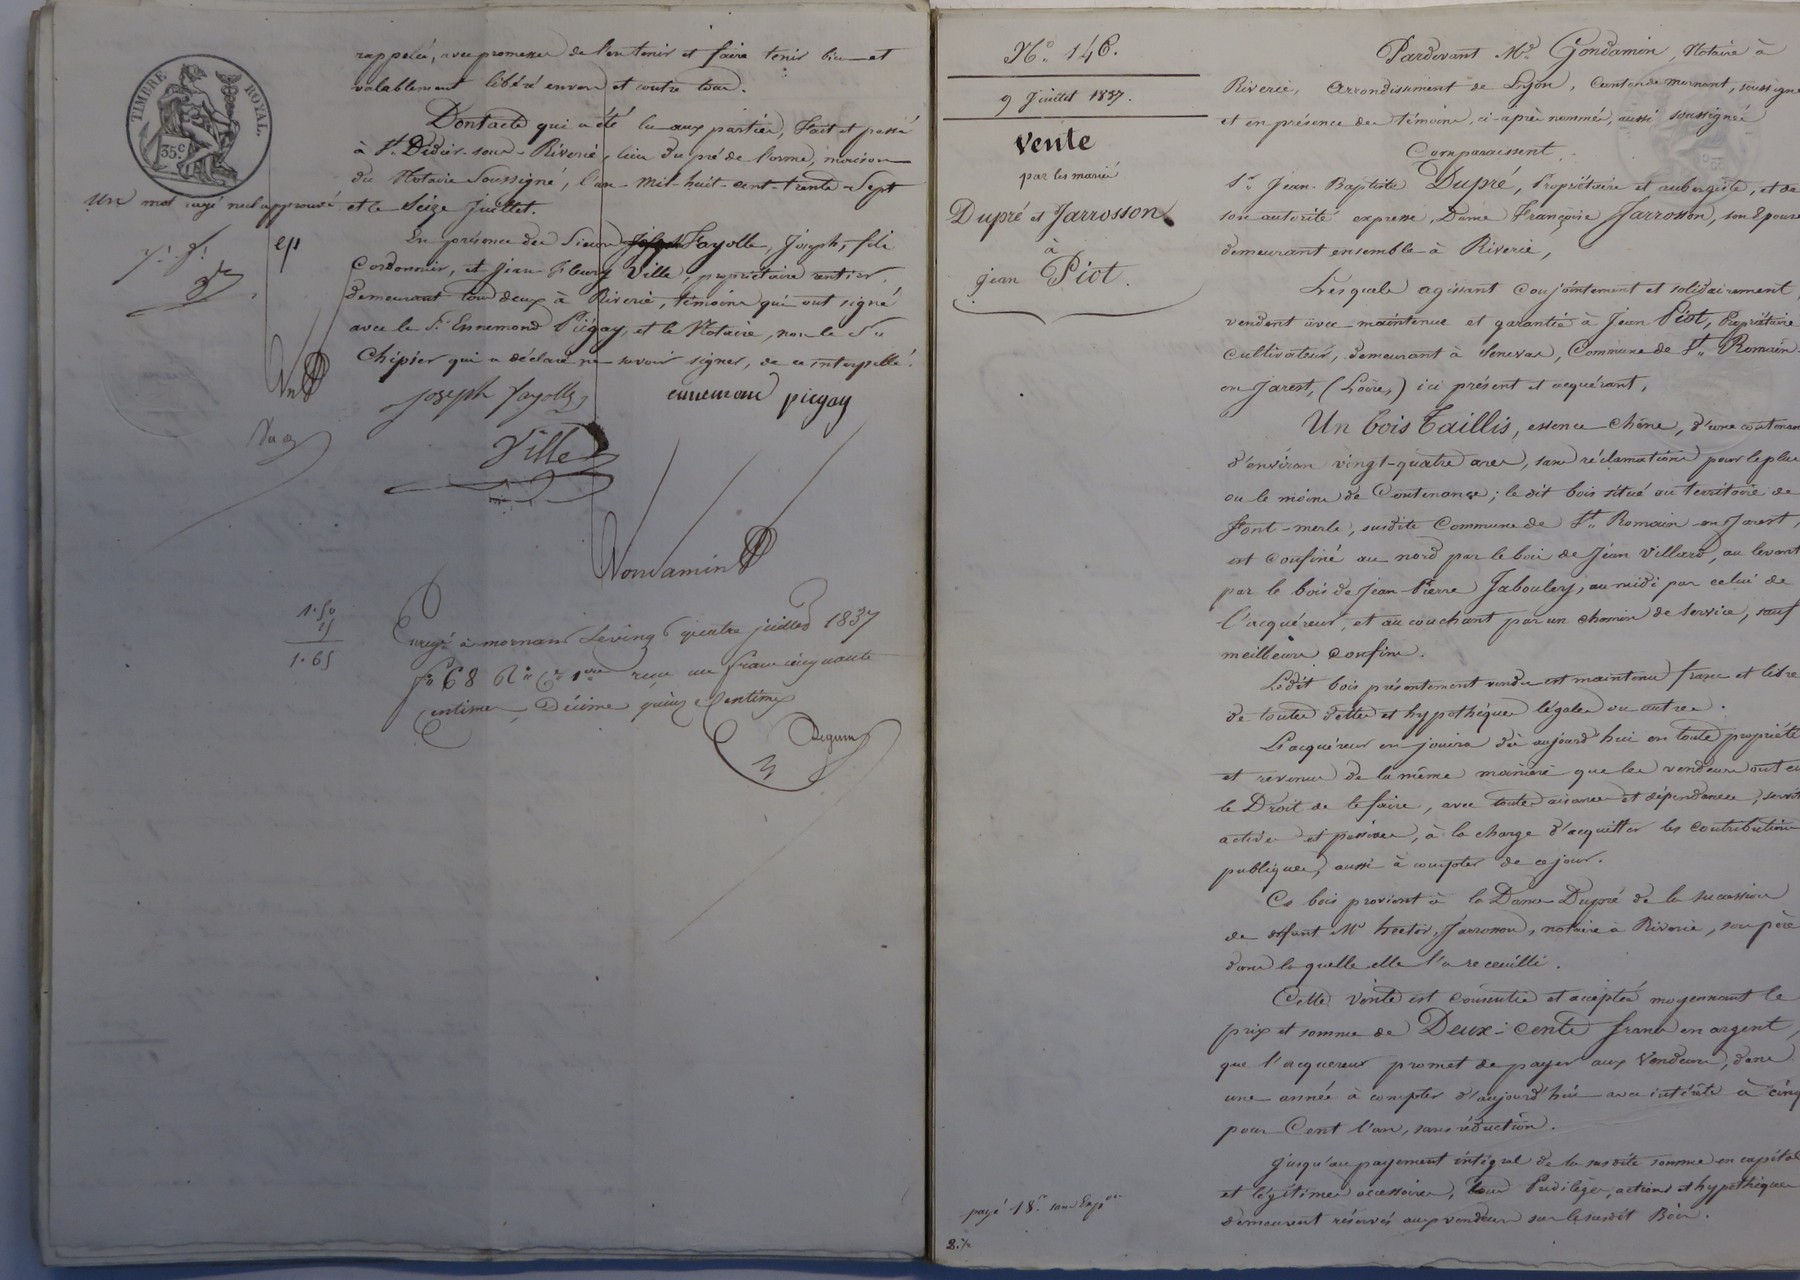 TIMBRE ROYAL.
35.c
rappelés, avec promesse de l'entenir et faire tenir bien et
valablement libéré envers et contre tous.
Dontacte qui a été lu aux parties, Fait et passé
à St. Didier-sous-Riverie, lieu du pré de l'orme, maison
du Notaire Soussigné, l'an mil-huit-cent-trente-Sept
et le Seize Juillet.
un mot rayé nul approuvé
En présence des Sieurs Joseph Fayolle, Joseph, fils
Cordonnier, et Jean-Fleury Ville, propriétaire rentier,
demeurant tous deux à Riverie, témoins qui ont signé
avec le Sr. Ennemond Piégay, et le Notaire, non le Sr
Chipier qui a déclaré ne savoir signer, de ce interpellé.
joseph fayolle
ennemond piegay
Ville
Gondamin
1.50
15
1.65
Enregé à mornant Le vingt quatre juillet 1837
fo 68 Ro Ce 1ere reçu un franc cinquante
centimes, Décime quinze Centimes
No. 146.
9 Juillet 1837.
Vente
par les mariés
Dupré et Jarrosson
à
jean Piot.
Pardevant Me Gondamin, Notaire à
Riverie, Arrondissement de Lyon, Canton de mornant, soussigné
et en présence des témoins, ci-après nommés, aussi soussignés
Comparaissent.
Sr. Jean-Baptiste Dupré, Propriétaire et aubergiste, et de
son autorité expresse, Dame Françoise Jarrosson, son Epouse
demeurant ensemble à Riverie,
Lesquels agissant Conjointement et solidairement,
vendent avec maintenue et garantie à Jean Piot, Propriétaire
cultivateur, demeurant à Senevas, Commune de St. Romain-
en Jarest, (Loire,) ici présent et acquérant,
Un bois Taillis, essence chêne, d'une contenance
d'environ vingt-quatre ares, sans réclamations pour le plus
ou le moins de Contenance; le dit bois situé au territoire de
font-merle, susdite Commune de St. Romain-en Jarest,
est confiné au nord par le bois de Jean Villard, au levant
par le bois de Jean-Pierre Jaboulery, au midi par celui de
l'acquéreur, et au couchant par un chemin de service, sauf
meilleurs confins.
Ledit bois présentement vendu est maintenu franc et libre
de toutes dettes et hypothèques légales ou autres.
L'acquéreur en jouira dès aujourd'hui en toute propriété
et revenus de la même manière que les vendeurs ont eu
le Droit de le faire, avec toutes aisances et dépendances, servit
actives et passives, à la charge d'acquitter les contributions
publiques, aussi à compter de ce jour.
Ce bois provient à la Dame Dupré de la succession
de défunt Me hector Jarrosson, notaire à Riverie, son père
dans laquelle elle l'a receuilli.
Cette vente est consentie et acceptée moyennant le
prix et somme de Deux-cents francs en argent,
que l'acquéreur promet de payer aux Vendeurs, dans
une année à compter d'aujourd'hui avec intérêts à cinq
pour Cent l'an, sans réduction.
Jusqu'au payement intégral de la susdite somme en capital
et légitimes accessoires, tous Priviléges, actions et hypothèques
demeurent réservés aux vendeurs sur le susdit Bois.
payé 18f.